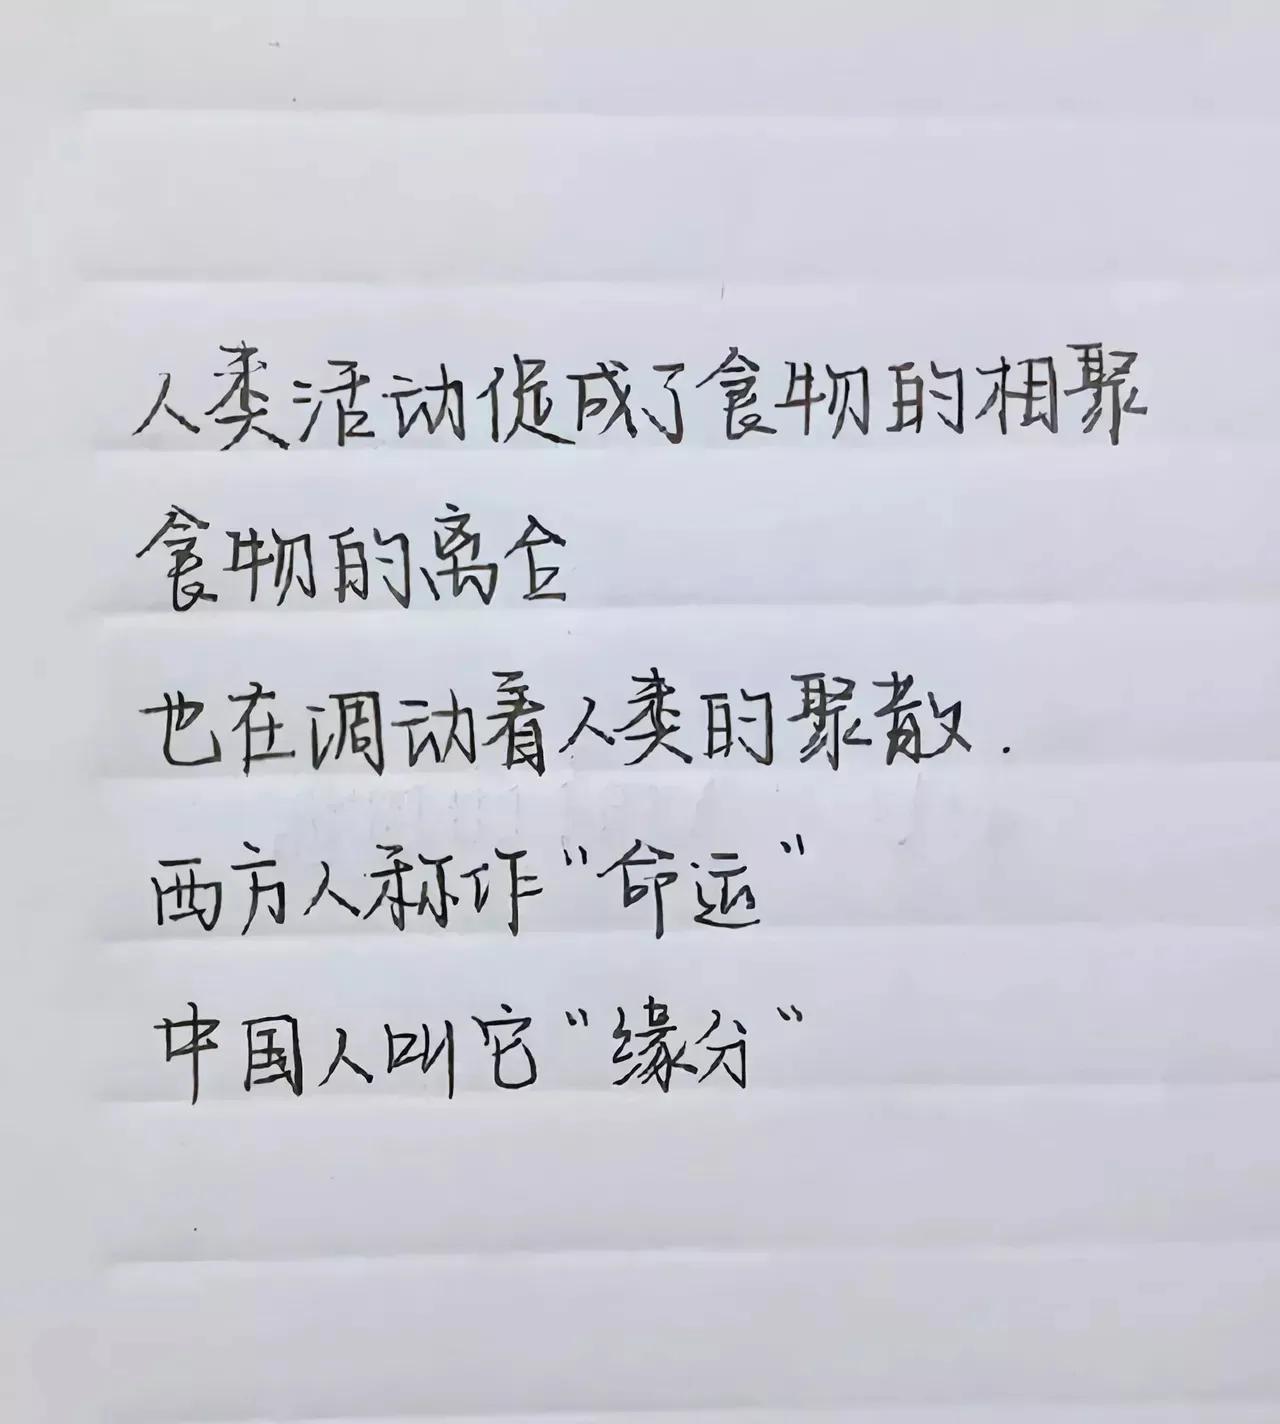 人类活动促成了食物的相聚
食物的离合
也在调动着人类的聚散.
西方人称作“命运”
中国人叫它“缘分”